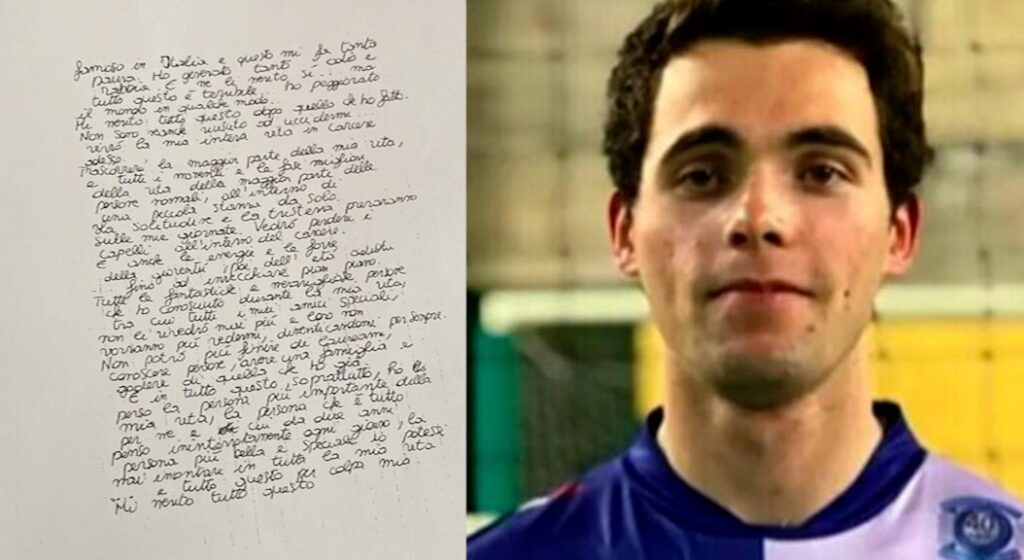 famoso in Italia e questo mi fa tanta
paura. Ho generato tanto odio e
rabbia. E me li merito sì... ma
tutto questo è terribile... ho peggiorato
il mondo in qualche modo...
Mi merito tutto questo dopo quello che ho fatto.
Non sono neanche riuscito ad uccidermi...
vivrò la mia intera vita in carcere
adesso.
Trascorrerò la maggior parte della mia vita,
e tutti i momenti e le fasi migliori
della vita della maggior parte delle
persone normali, all'interno di
una piccola stanza da solo.
La solitudine e la tristezza prevarranno
sulle mie giornate. Vedrò perdere i
capelli all'interno del carcere.
E anche le energie e le forze
della gioventù, poi dell'età adulta
fino ad invecchiare pian piano.
Tutte le fantastiche e meravigliose persone
che ho conosciuto durante la mia vita,
tra cui tutti i miei amici speciali,
non li rivedrò mai più e loro non
vorranno più vedermi, dimenticandomi per sempre.
Non potrò più finire di laurearmi,
conoscere persone, avere una famiglia e
godere di quella che ho già.
E in tutto questo, soprattutto, ho
perso la persona più importante della
mia vita, la persona che è tutto
per me e a cui da due anni
penso ininterrottamente ogni giorno, la
persona più bella e speciale io potessi
mai incontrare in tutta la mia vita
e tutto questo per colpa mia.
Mi merito tutto questo
40